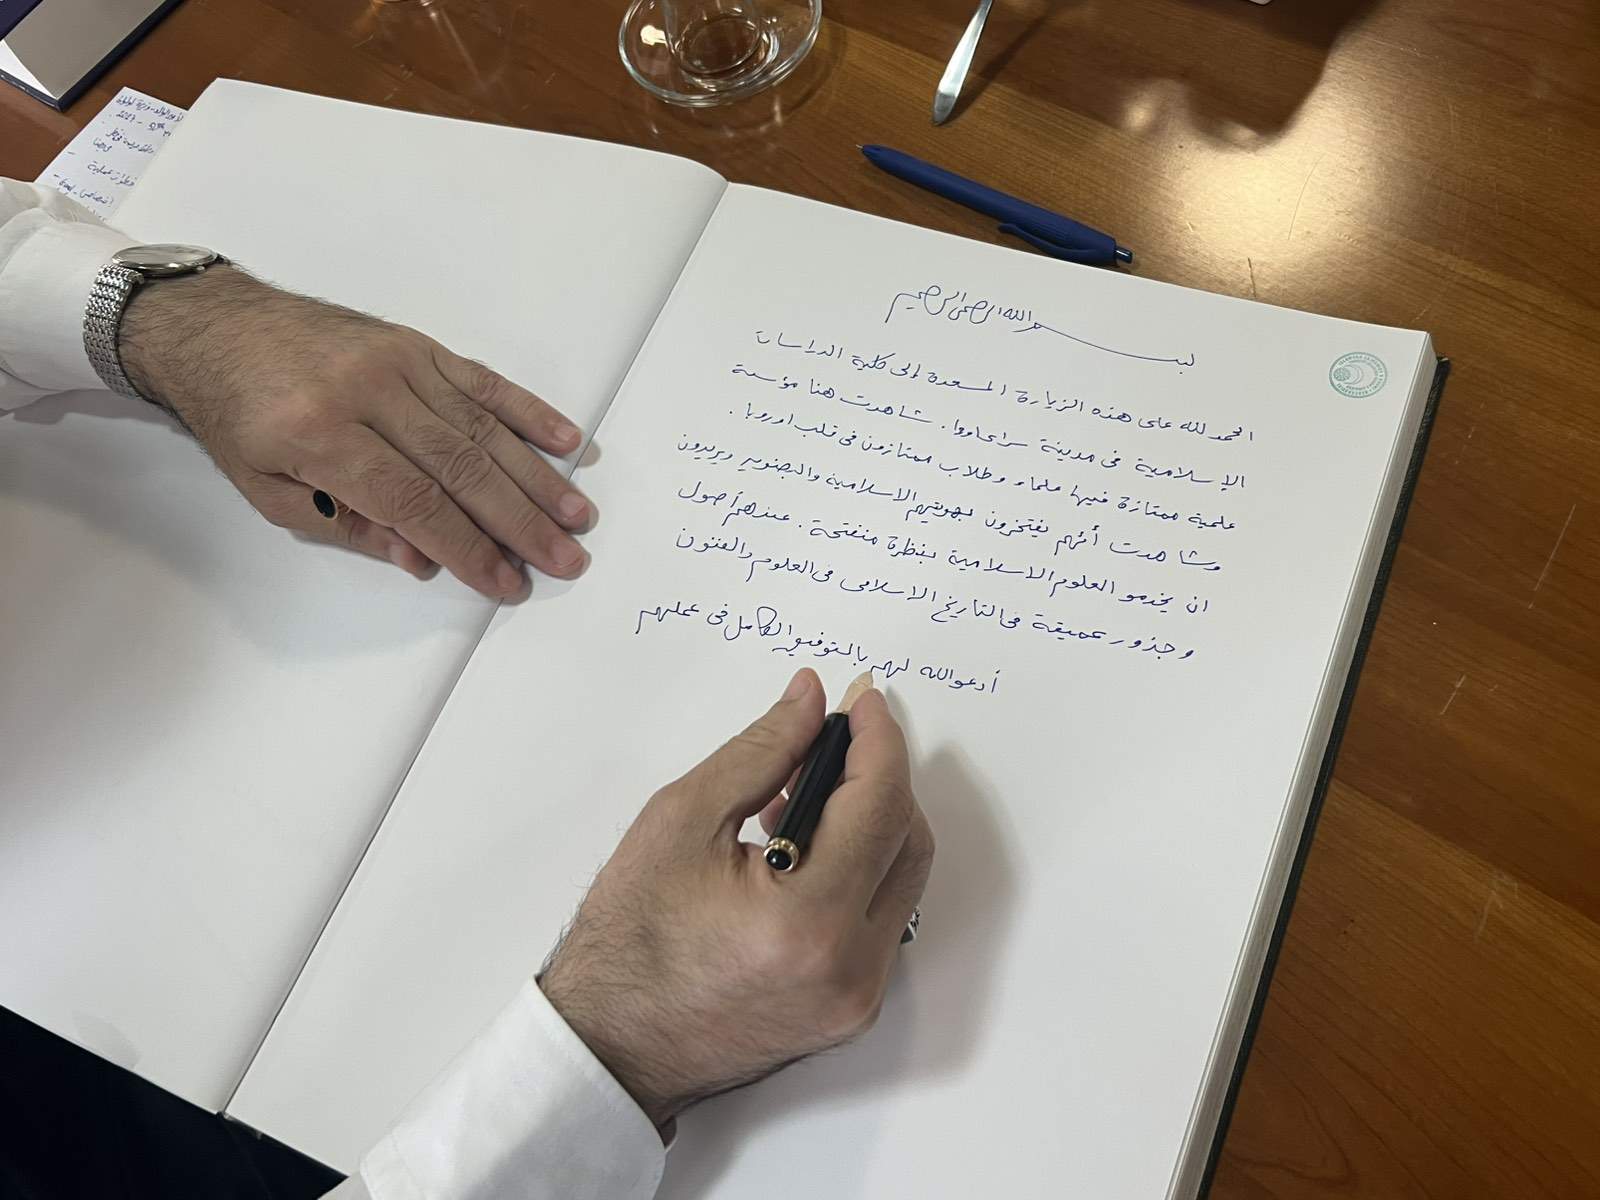 بسم الله الرحمن الرحيم
الحمد لله على هذه الزيارة المسعدة إلى كلية الدراسات
الإسلامية فى مدينة سراجاووا. شاهدت هنا مؤسسة
علمية ممتازة فيها علماء وطلاب ممتازون فى قلب اوروبا.
وشاهدت أنهم يفتخرون بهويتهم الاسلامية والبوسنوية ويريدون
ان يخدمو العلوم الاسلامية بنظرة منفتحة. عندهم أصول
و جذور عميقة فى التاريخ الاسلامى فى العلوم والفنون
أدعو الله لهم بالتوفيق الكامل فى عملهم